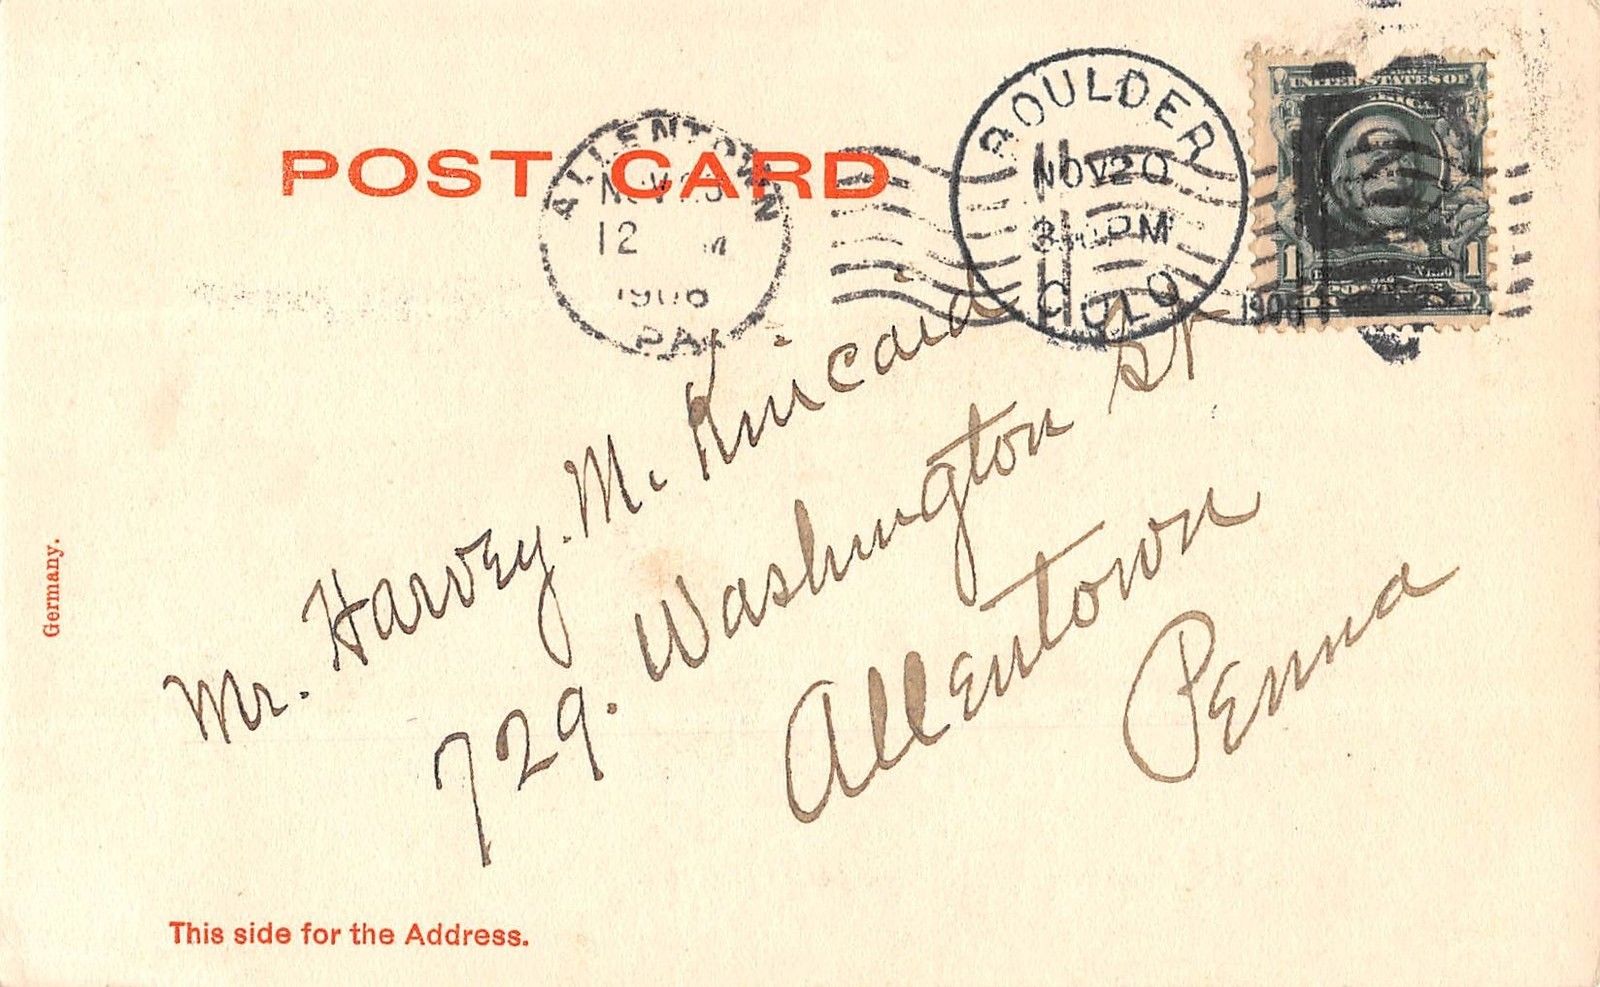 POST CARD
ALLENTOWN
NOV
12 M
1906
PA.
BOULDER
NOV 20
PM
COLO
1906
UNITED STATES OF
1 1
Mr. Harvey. M. Kincaid
729. Washington St
Allentown
Penna
Germany.
This side for the Address.